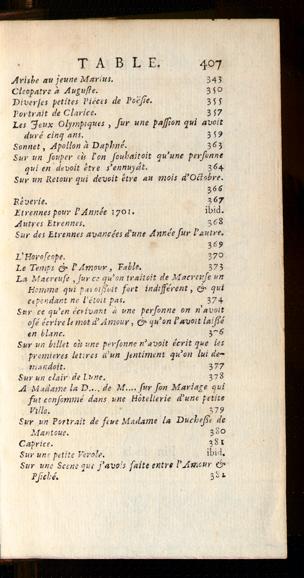 TABLE. 407
Arisbe au jeune Marius. 343
Cleopatre à Auguste. 350
Diverses petites Pièces de Poësie. 355
Portrait de Clarice. 357
Les Jeux Olympiques, sur une passion qui avoit
duré cinq ans. 359
Sonnet, Apollon à Daphné. 363
Sur un souper où l'on souhaitoit qu'une personne
qui en devoit être s'ennuyât. 364
Sur un Retour qui devoit être au mois d'Octobre.
366
Rêverie. 367
Etrennes pour l'Année 1701. ibid.
Autres Etrennes. 368
Sur des Etrennes avancées d'une Année sur l'autre.
369
L'Horoscope. 370
Le Temps & l'Amour, Fable. 373
La Macreuse, sur ce qu'on traitoit de Macreuse un
Homme qui paroissoit fort indifférent, & qui
cependant ne l'étoit pas. 374
Sur ce qu'en écrivant à une personne on n'avoit
osé écrire le mot d'Amour, & qu'on l'avoit laissé
en blanc. 376
Sur un billet où une personne n'avoit écrit que les
premieres letres d'un sentiment qu'on lui de-
mandoit. 377
Sur un clair de Lune. 378
A Madame la D... de M.... sur son Mariage qui
fut consommé dans une Hôtellerie d'une petite
Ville. 379
Sur un Portrait de feue Madame la Duchesse de
Mantoue. 380
Caprice. 381
Sur une petite Verole. ibid.
Sur une Scene que j'avois faite entre l'Amour &
Psiché. 382